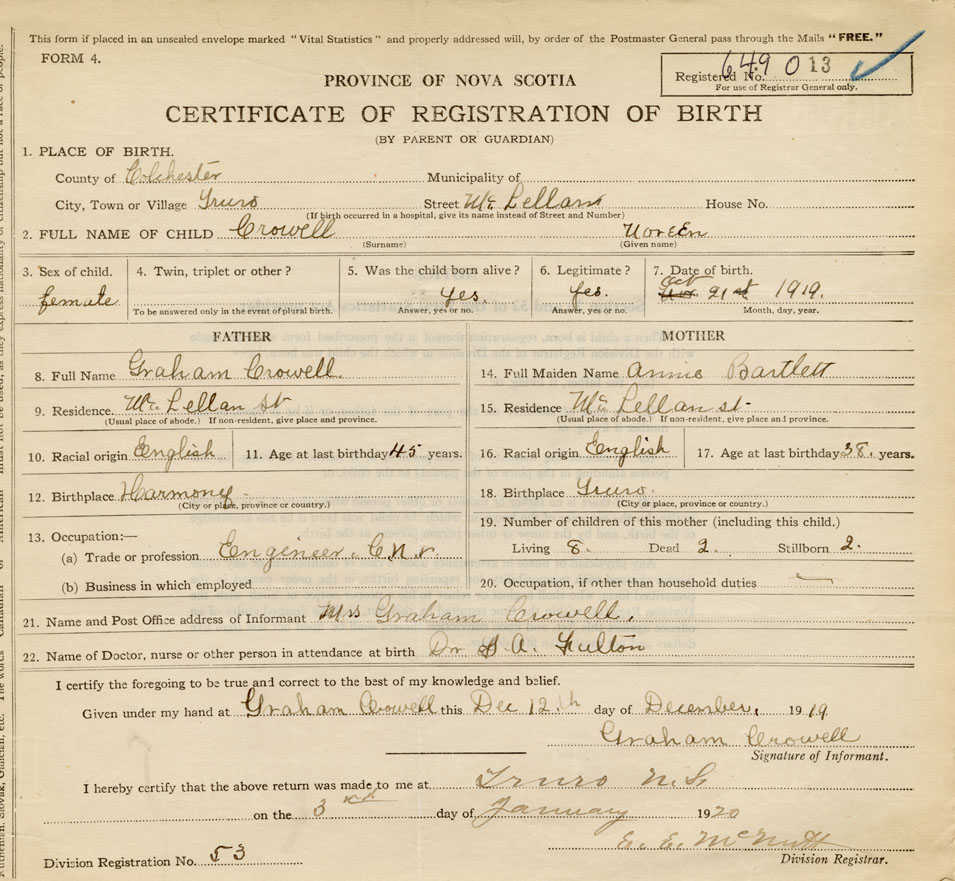 This form if placed in an unsealed envelope marked "Vital Statistics" and properly addressed will, by order of the Postmaster General pass through the Mails "FREE."
FORM 4.
Registered No. 649 013
For use of Registrar General only.
PROVINCE OF NOVA SCOTIA
CERTIFICATE OF REGISTRATION OF BIRTH
(BY PARENT OR GUARDIAN)
1. PLACE OF BIRTH.
County of Colchester Municipality of
City, Town or Village Truro Street Mc Lellans House No.
(If birth occurred in a hospital, give its name instead of Street and Number)
2. FULL NAME OF CHILD Crowell Noreen
(Surname) (Given name)
3. Sex of child. 4. Twin, triplet or other? 5. Was the child born alive? 6. Legitimate? 7. Date of birth.
female yes. yes. Oct 21st 1919.
To be answered only in the event of plural birth. Answer, yes or no. Answer, yes or no. Month, day, year.
FATHER MOTHER
8. Full Name Graham Crowell. 14. Full Maiden Name Annie Bartlett
9. Residence Mc Lellan st 15. Residence Mc Lellan st
(Usual place of abode.) If non-resident, give place and province. (Usual place of abode.) If non-resident, give place and province.
10. Racial origin English 11. Age at last birthday 45 years. 16. Racial origin English 17. Age at last birthday 38. years.
12. Birthplace Harmony 18. Birthplace Truro.
(City or place, province or country.) (City or place, province or country.)
13. Occupation:— 19. Number of children of this mother (including this child.)
(a) Trade or profession Engineer. C.N.r. Living 8. Dead 2. Stillborn 2.
(b) Business in which employed 20. Occupation, if other than household duties —
21. Name and Post Office address of Informant Mrs Graham Crowell.
22. Name of Doctor, nurse or other person in attendance at birth Dr A. Fulton
I certify the foregoing to be true and correct to the best of my knowledge and belief.
Given under my hand at Graham Crowell this Dec 12.th day of December, 1919
Graham Crowell
Signature of Informant.
I hereby certify that the above return was made to me at Truro N.S.
on the 3 day of January 1920
E. E. McNutt
Division Registration No. 53 Division Registrar.